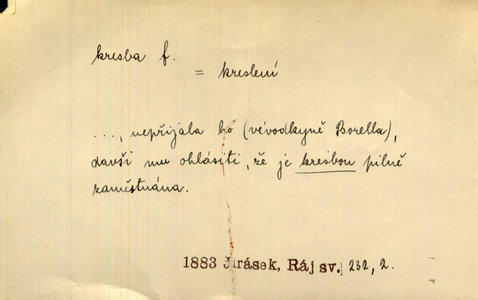 kresba f.
= kreslení
..., nepřijala ho (vévodkyně Borella),
davši mu ohlásiti, že je kresbou pilně
zaměstnána.
1883 Jirásek, Ráj sv. 232, 2.